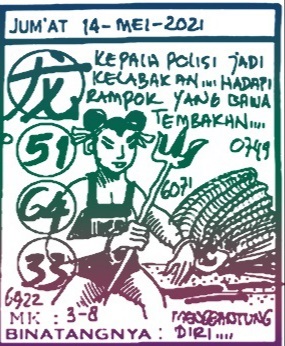 JUM'AT 14-MEI-2021
KEPALA POLISI JADI
KELABAKAN.... HADAPI
RAMPOK YANG BAWA
TEMBAKAN....
龙
0749
51
6071
64
33
6922
MK : 3-8
MENGGANTUNG
BINATANGNYA : DIRI....